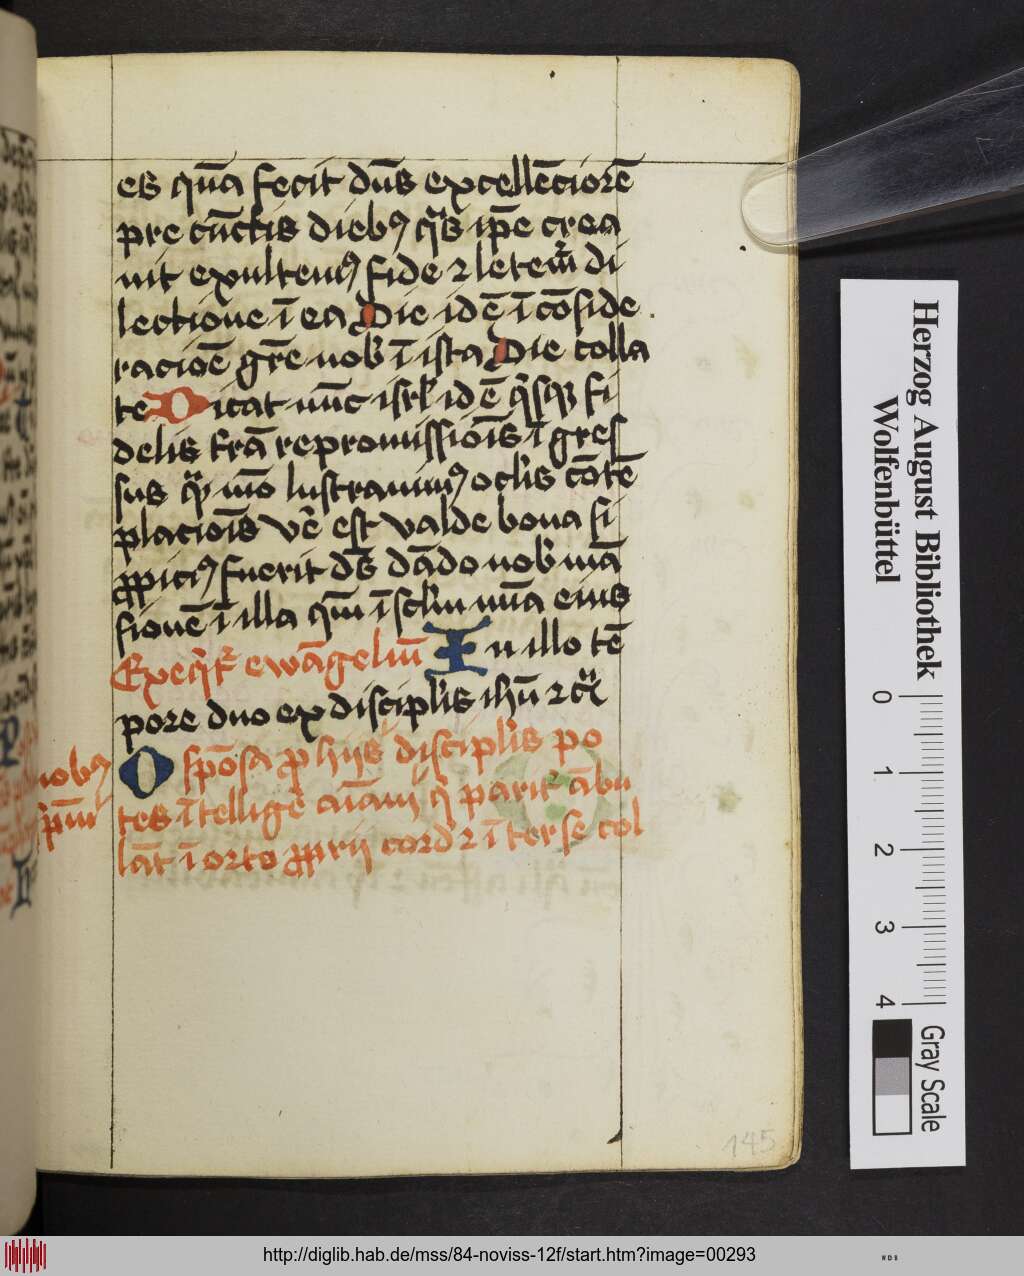 es quā fecit dn̄s excellēciorē
pre cūctis diebꝰ qͥs ip̄e crea
uit exultemꝰ fide ⁊ letem̄ di
lectione ī ea Die id ē ī cōside
racioē gr̄e nob̾ ī ista Die colla
te Dicat nūc isrl̾ id ē qͥsqꝫ fi
delis t̾rā repromissiōis īgres
sus qᷓꝫ mō lustrauimꝰ oclis cōtē
placiōis vē est valde bona si
ꝓpiciꝰ fuerit dēs dādo nob̾ mā
sionē ī illa qm̄ ī sclm̄ mīa eius
Exeqͥt̾ ewāgeliū In illo tē
pore duo ex discipl̾is ihū ⁊cͣ
O spōsa ꝓ hijs discipl̾is po
tes ītellige aīam q̄ parit̾ ābu
lāt ī orto ꝓprij cord̾ ⁊ īter se col
145
Herzog August Bibliothek
Wolfenbüttel
0 1 2 3 4
Gray Scale
http://diglib.hab.de/mss/84-noviss-12f/start.htm?image=00293